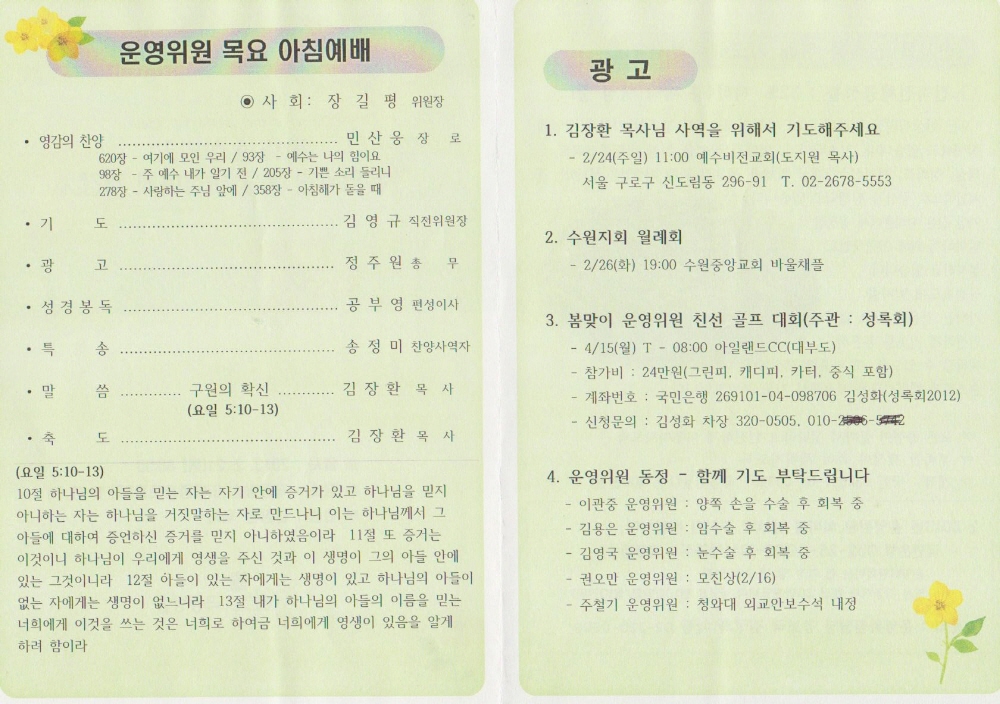 운영위원 목요 아침예배
◉ 사 회 : 장 길 평 위원장
• 영감의 찬양 ........................................ 민 산 웅 장 로
620장 - 여기에 모인 우리 / 93장 - 예수는 나의 힘이요
98장 - 주 예수 내가 알기 전 / 205장 - 기쁜 소리 들리니
278장 - 사랑하는 주님 앞에 / 358장 - 아침해가 돋을 때
• 기 도 ........................................ 김 영 규 직전위원장
• 광 고 ........................................ 정 주 원 총 무
• 성 경 봉 독 ........................................ 공 부 영 편성이사
• 특 송 ........................................ 송 정 미 찬양사역자
• 말 씀 ............ 구원의 확신 ............ 김 장 환 목 사
(요일 5:10-13)
• 축 도 ........................................ 김 장 환 목 사
(요일 5:10-13)
10절 하나님의 아들을 믿는 자는 자기 안에 증거가 있고 하나님을 믿지
아니하는 자는 하나님을 거짓말하는 자로 만드나니 이는 하나님께서 그
아들에 대하여 증언하신 증거를 믿지 아니하였음이라 11절 또 증거는
이것이니 하나님이 우리에게 영생을 주신 것과 이 생명이 그의 아들 안에
있는 그것이니라 12절 아들이 있는 자에게는 생명이 있고 하나님의 아들이
없는 자에게는 생명이 없느니라 13절 내가 하나님의 아들의 이름을 믿는
너희에게 이것을 쓰는 것은 너희로 하여금 너희에게 영생이 있음을 알게
하려 함이라
광 고
1. 김장환 목사님 사역을 위해서 기도해주세요
- 2/24(주일) 11:00 예수비전교회(도지원 목사)
서울 구로구 신도림동 296-91 T. 02-2678-5553
2. 수원지회 월례회
- 2/26(화) 19:00 수원중앙교회 바울채플
3. 봄맞이 운영위원 친선 골프 대회(주관 : 성록회)
- 4/15(월) T - 08:00 아일랜드CC(대부도)
- 참가비 : 24만원(그린피, 캐디피, 카터, 중식 포함)
- 계좌번호 : 국민은행 269101-04-098706 김성화(성록회2012)
- 신청문의 : 김성화 차장 320-0505, 010-
4. 운영위원 동정 - 함께 기도 부탁드립니다
- 이관중 운영위원 : 양쪽 손을 수술 후 회복 중
- 김용은 운영위원 : 암수술 후 회복 중
- 김영국 운영위원 : 눈수술 후 회복 중
- 권오만 운영위원 : 모친상(2/16)
- 주철기 운영위원 : 청와대 외교안보수석 내정